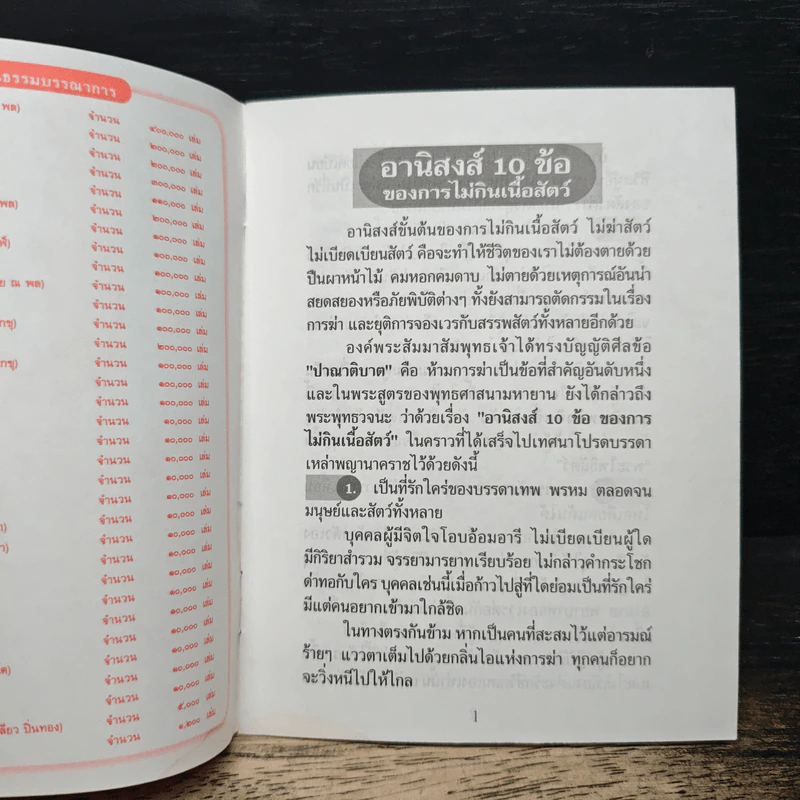 นธรรมบรรณาการ
พล)
จำนวน ๔๐๐,๐๐๐ เล่ม
จำนวน ๒๐๐,๐๐๐ เล่ม
จำนวน ๒๐๐,๐๐๐ เล่ม
จำนวน ๓๐๐,๐๐๐ เล่ม
พล)
จำนวน ๑๑๐,๐๐๐ เล่ม
จำนวน ๒๐๐,๐๐๐ เล่ม
จำนวน ๑๐๐,๐๐๐ เล่ม
จำนวน ๑๐๐,๐๐๐ เล่ม
ย ณ พล)
จำนวน ๑๐๐,๐๐๐ เล่ม
จำนวน ๑๐๐,๐๐๐ เล่ม
กขุ)
จำนวน ๑๐๐,๐๐๐ เล่ม
จำนวน ๑๐๐,๐๐๐ เล่ม
กขุ)
จำนวน ๑๐๐,๐๐๐ เล่ม
จำนวน ๑๐,๐๐๐ เล่ม
จำนวน ๑๐,๐๐๐ เล่ม
จำนวน ๑๐,๐๐๐ เล่ม
จำนวน ๑๐,๐๐๐ เล่ม
จำนวน ๑๐,๐๐๐ เล่ม
จำนวน ๑๐,๐๐๐ เล่ม
จำนวน ๑๐,๐๐๐ เล่ม
จำนวน ๑๐,๐๐๐ เล่ม
จำนวน ๑๐,๐๐๐ เล่ม
จำนวน ๑๐,๐๐๐ เล่ม
จำนวน ๑๐,๐๐๐ เล่ม
จำนวน ๑๐,๐๐๐ เล่ม
จำนวน ๕,๐๐๐ เล่ม
ลียว ปิ่นทอง)
จำนวน ๑,๒๐๐ เล่ม
อานิสงส์ 10 ข้อ
ของการไม่กินเนื้อสัตว์
อานิสงส์ขั้นต้นของการไม่กินเนื้อสัตว์ ไม่ฆ่าสัตว์
ไม่เบียดเบียนสัตว์ คือจะทำให้ชีวิตของเราไม่ต้องตายด้วย
ปืนผาหน้าไม้ คมหอกคมดาบ ไม่ตายด้วยเหตุการณ์อันน่า
สยดสยองหรือภัยพิบัติต่างๆ ทั้งยังสามารถตัดกรรมในเรื่อง
การฆ่า และยุติการจองเวรกับสรรพสัตว์ทั้งหลายอีกด้วย
องค์พระสัมมาสัมพุทธเจ้าได้ทรงบัญญัติศีลข้อ
"ปาณาติบาต" คือ ห้ามการฆ่าเป็นข้อที่สำคัญอันดับหนึ่ง
และในพระสูตรของพุทธศาสนามหายาน ยังได้กล่าวถึง
พระพุทธวจนะ ว่าด้วยเรื่อง "อานิสงส์ 10 ข้อ ของการ
ไม่กินเนื้อสัตว์" ในคราวที่ได้เสร็จไปเทศนาโปรดบรรดา
เหล่าพญานาคราชไว้ด้วยดังนี้
1. เป็นที่รักใคร่ของบรรดาเทพ พรหม ตลอดจน
มนุษย์และสัตว์ทั้งหลาย
บุคคลผู้มีจิตใจโอบอ้อมอารี ไม่เบียดเบียนผู้ใด
มีกิริยาสำรวม จรรยามารยาทเรียบร้อย ไม่กล่าวคำกระโชก
ด่าทอกับใคร บุคคลเช่นนี้เมื่อก้าวไปสู่ที่ใดย่อมเป็นที่รักใคร่
มีแต่คนอยากเข้ามาใกล้ชิด
ในทางตรงกันข้าม หากเป็นคนที่สะสมไว้แต่อารมณ์
ร้ายๆ แววตาเต็มไปด้วยกลิ่นไอแห่งการฆ่า ทุกคนก็อยาก
จะวิ่งหนีไปให้ไกล
1